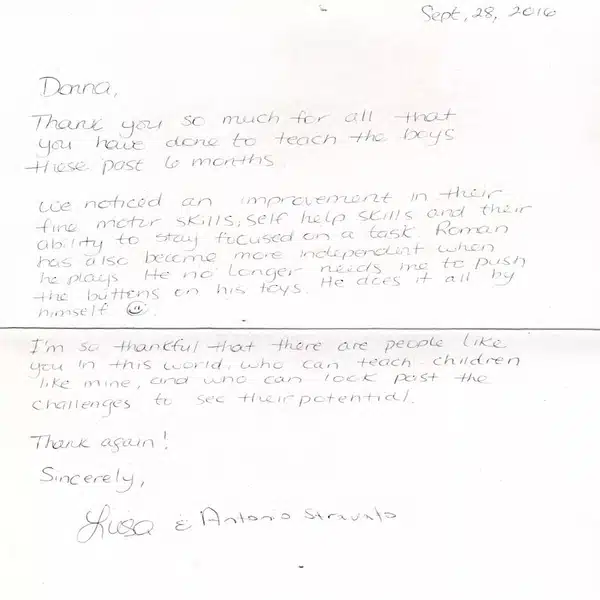 Sept, 28, 2016
Donna,
Thank you so much for all that
you have done to teach the boys
these past 6 months
We noticed an improvement in their
fine motor skills, self help skills and their
ability to stay focused on a task. Roman
has also become more independent when
he plays. He no longer needs me to push
the buttens on his toys. He does it all by
himself ☺.
I'm so thankful that there are people like
you in this world, who can teach children
like mine, and who can look past the
challenges to see their potential.
Thank again!
Sincerely,
Luisa & Antonio Stravato